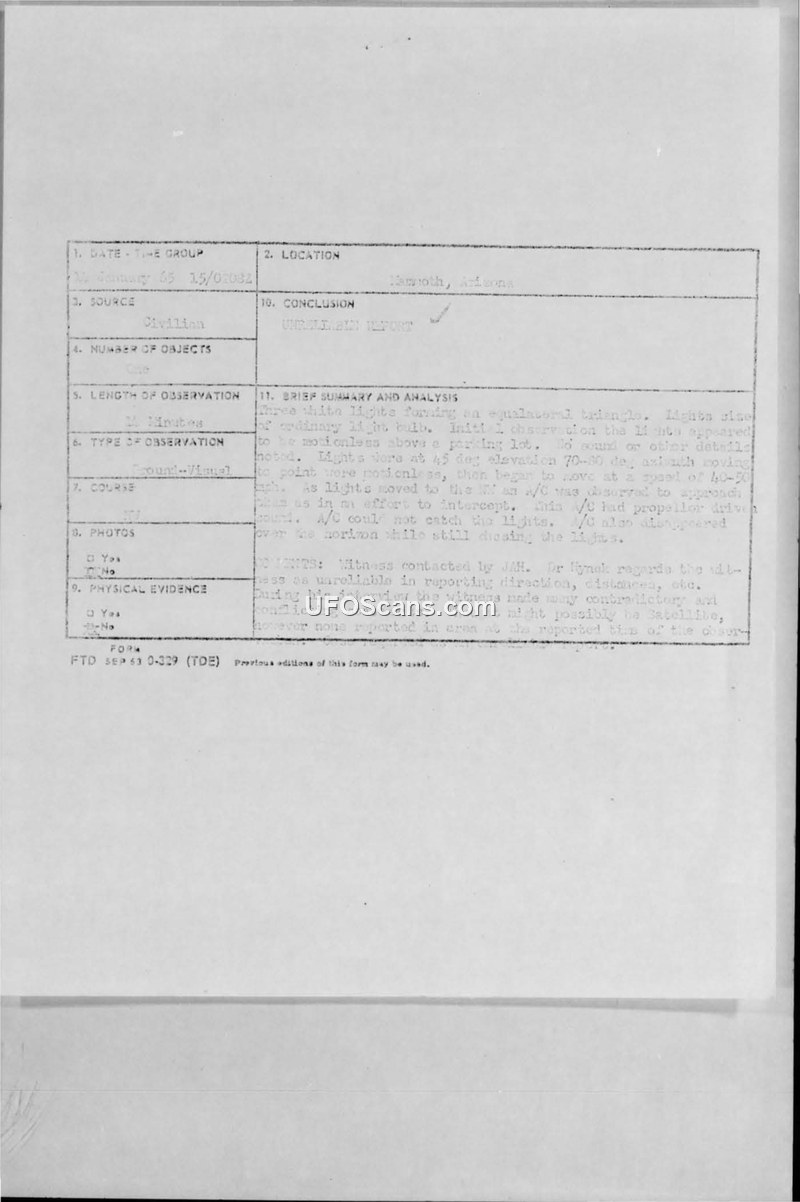 1. DATE - TIME GROUP
January 65 15/0108Z
2. LOCATION
Mammoth, Arizona
3. SOURCE
Civilian
10. CONCLUSION
UNRELIABLE REPORT
4. NUMBER OF OBJECTS
One
5. LENGTH OF OBSERVATION
Minutes
11. BRIEF SUMMARY AND ANALYSIS
Three white lights forming an equalateral triangle. Lights size
of ordinary light bulb. Initial observation the lights appeared
to be motionless above a parking lot. No sound or other details
noted. Lights were at 45 deg elevation 70-80 deg azimuth moving
to point were motionless, then began to move at a speed of 40-50
mph. As lights moved to the NW an A/C was observed to approach
them as in an effort to intercept. This A/C had propellor driven
sound. A/C could not catch the lights. A/C also disappeared
over the horizon while still chasing the lights.
COMMENTS: Witness contacted by JAH. Dr Hynek regards the wit-
ness as unreliable in reporting direction, distances, etc.
During his interview the witness made many contradictory and
might possibly be Satellite,
however none reported in area at the reported time of the obser-
6. TYPE OF OBSERVATION
Ground-Visual
7. COURSE
NW
8. PHOTOS
□ Yes
No
9. PHYSICAL EVIDENCE
□ Yes
No
FORM
FTD SEP 63 0-329 (TDE) Previous editions of this form may be used.
UFOScans.com